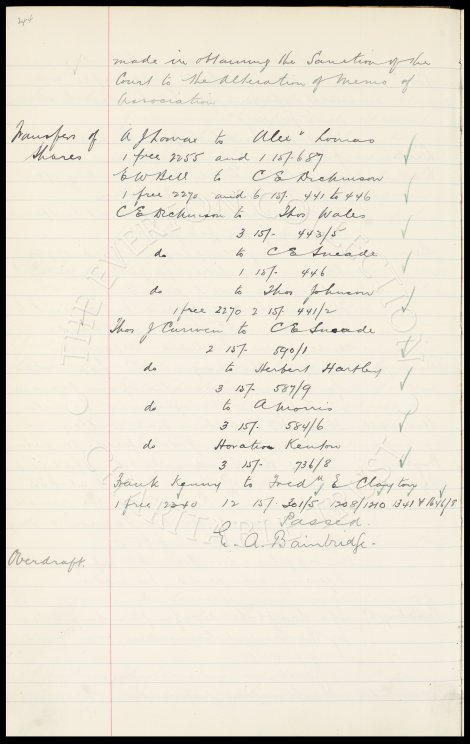 244
made in obtaining the Sanction of the
Court to the Alteration of Memo of
Association
Transfers of Shares
A J Lomax to Alec" Lomas
1 free 2255 and 1 15/- 687
E W Bell to C E Dickinson
1 free 2270 and 6 15/- 441 to 446
C E Dickinson to Thos Wales
3 15/- 443/5
do to C E Sneade
1 15/- 446
do to Thos Johnson
1 free 2270 2 15/- 441/2
Thos J Curwen to C E Sneade
2 15/- 590/1
do to Herbert Hartley
3 15/- 587/9
do to A Morris
3 15/- 584/6
do Horatio Kenton
3 15/- 736/8
Frank Kenny to Fred K E Clayton
1 free 2240 12 15/- 301/5 1208/1210 1341 + 1646/8
Passed.
E. A. Bainbridge.
Overdraft.
THE EVERTON COLLECTION CHARITABLE TRUST